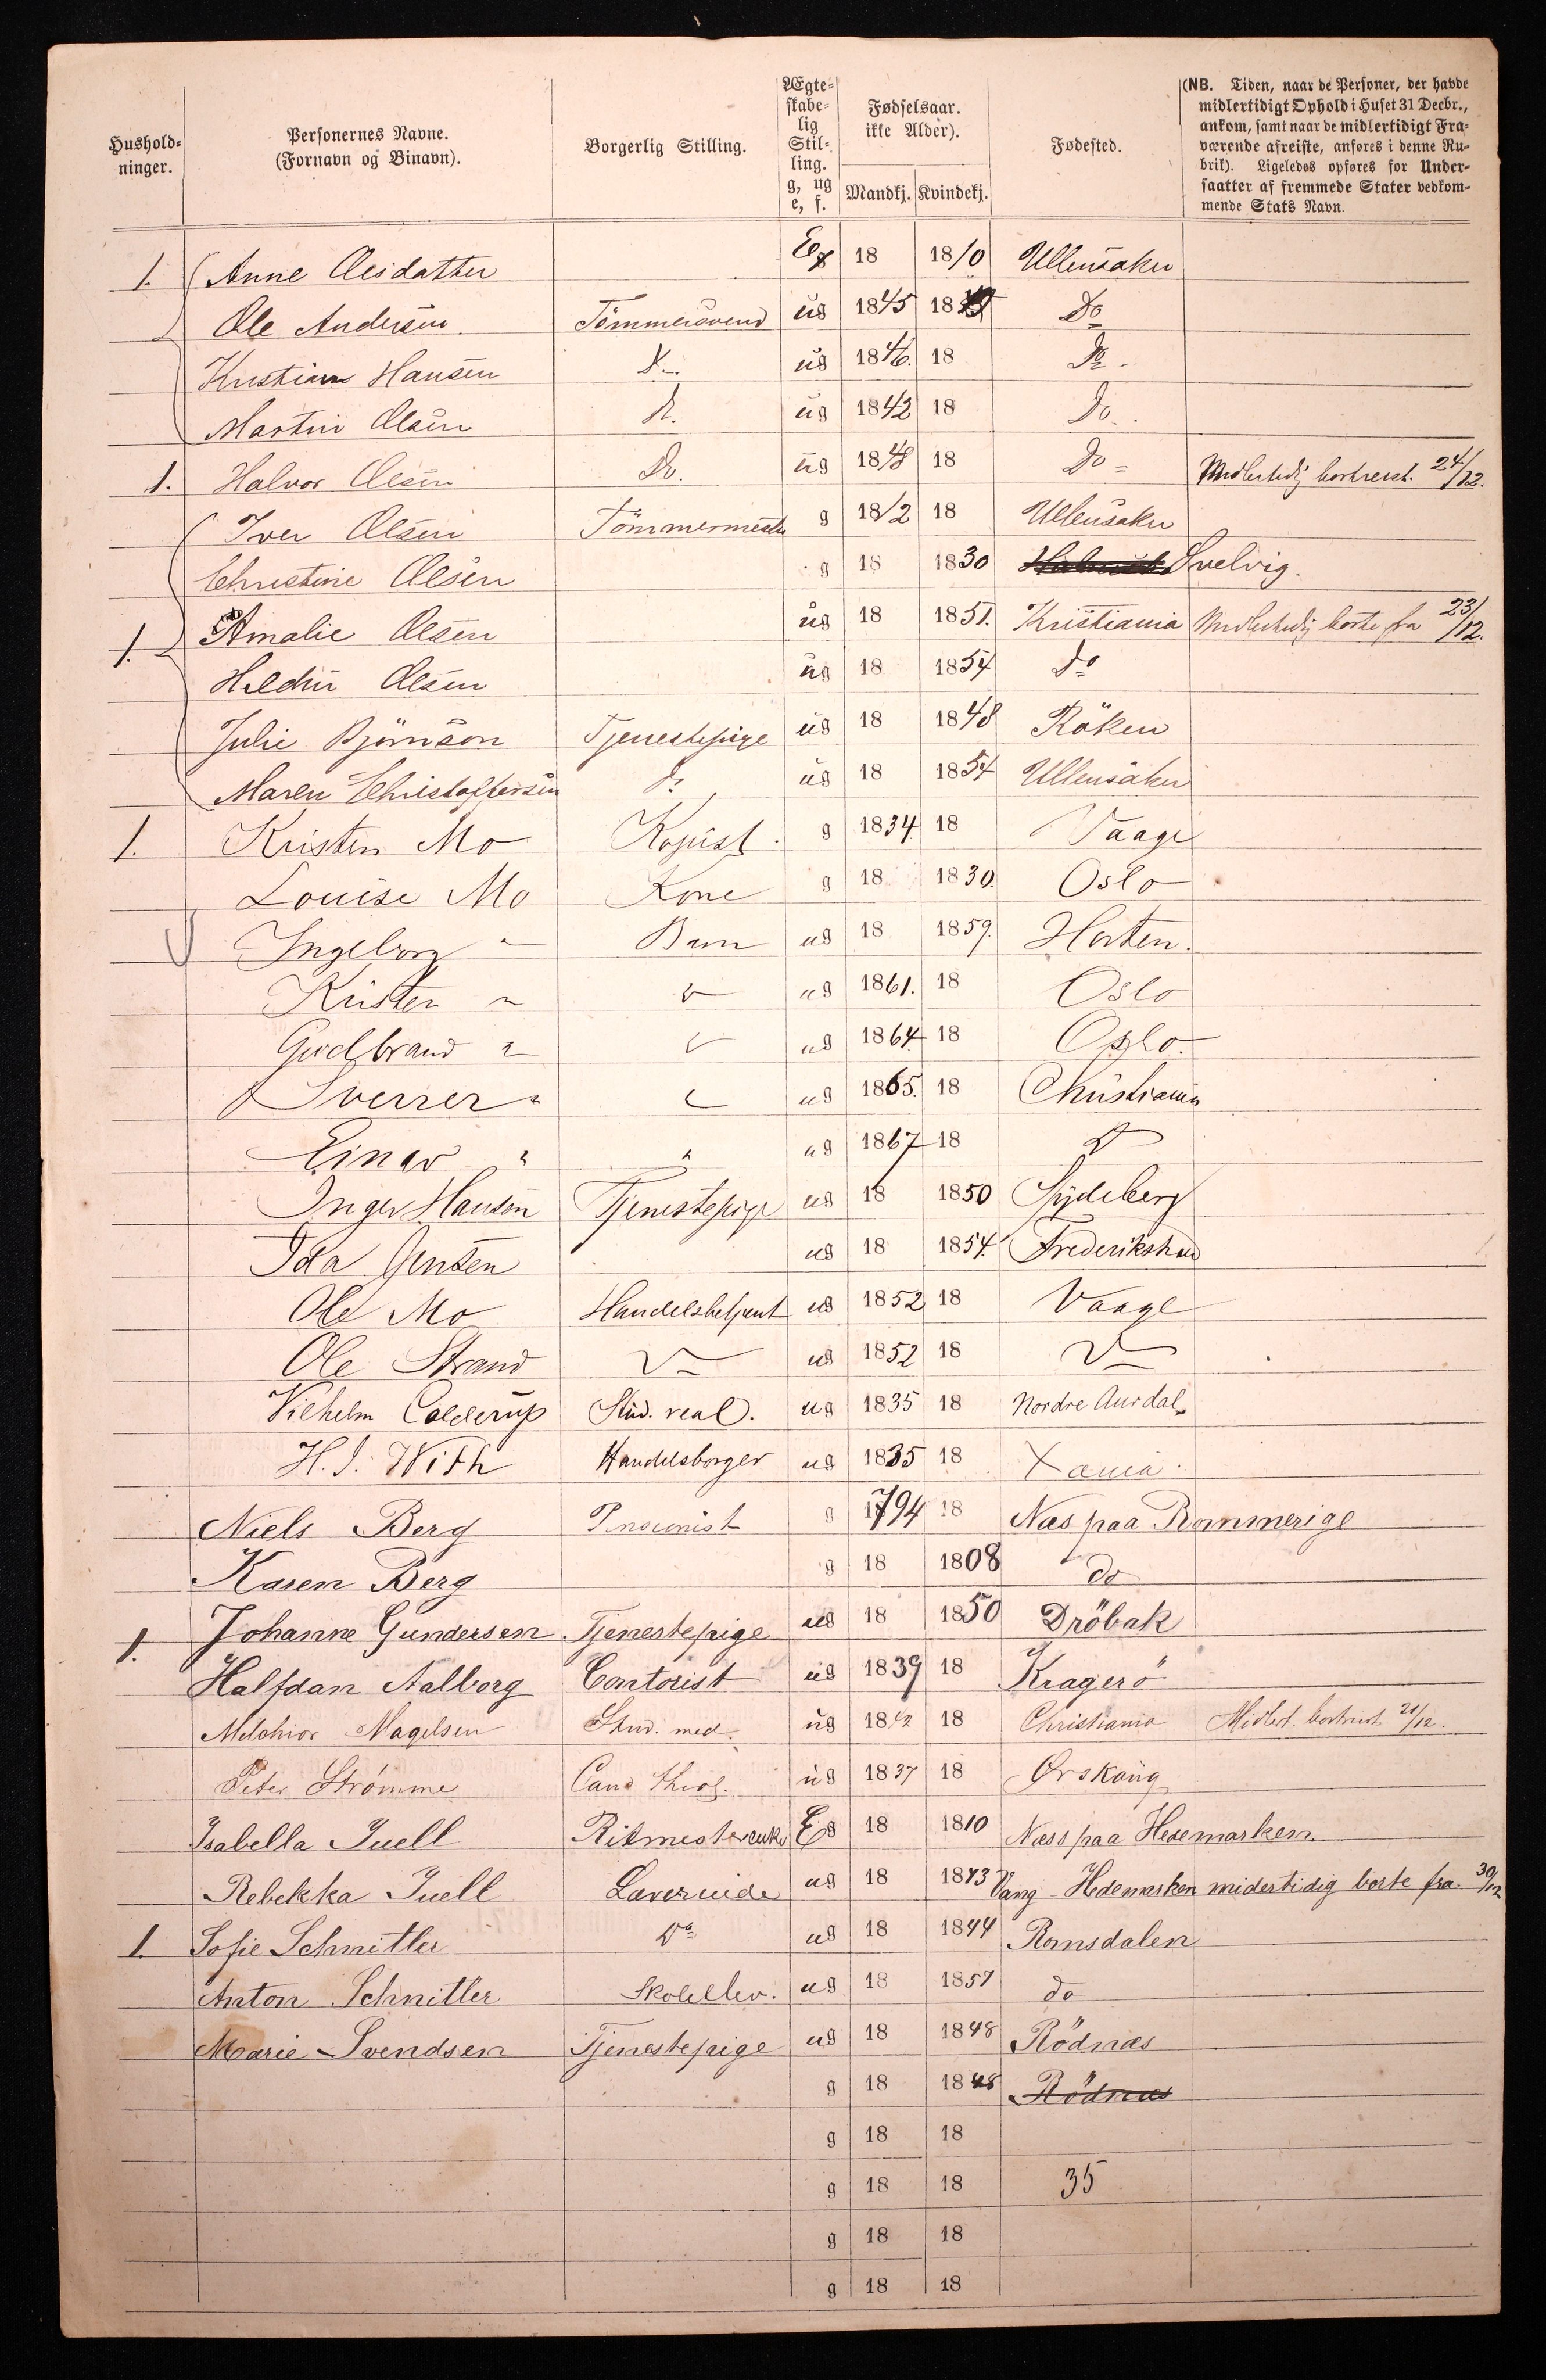 Hushold-
ninger.
Personernes Navne.
(Fornavn og Binavn).
Borgerlig Stilling.
Ægte-
skabe-
lig
Stil-
ling.
g, ug
e, f.
Fødselsaar.
ikke Alder).
Mandkj. Kvindekj.
Fødested.
(NB. Tiden, naar de Personer, der havde
midlertidigt Ophold i Huset 31 Decbr.,
ankom, samt naar de midlertidigt Fra-
værende afreiste, anføres i denne Ru-
brik). Ligeledes opføres for Under-
saatter af fremmede Stater vedkom-
mende Stats Navn.
1. Anne Olesdatter Eg 18 1810 Ullensaker
Ole Andersen Tömmersvend ug 1845 18 Do
Kristian Hansen D. ug 1846. 18 Do.
Martin Olsen D. ug 1842 18 Do.
1. Halvor Olsen Do. ug 1848 18 Do Midlertidig bortreist. 24/12.
Iver Olsen Tömmermester g 1812 18 Ullensaker
Christine Olsen g 18 1830 Svelvig.
1. Amalie Olsen ug 18 1851. Kristiania Midlertidig borte fra 23/12.
Olsen ug 18 1854 do
Julie Björnson Tjenestepige ug 18 1848 Röken
Maren Christoffersen do ug 18 1854 Ullensaker
1. Kristen Mo Kopist. g 1834. 18 Vaage
Louise Mo Kone g 18 1830. Oslo
Ingeborg " Barn ug 18 1859. Horten.
Kristen " " ug 1861. 18 Oslo
Gudbrand " " ug 1864. 18 Oslo.
Sverrer " " ug 1865. 18 Christiania
Einar " " ug 1867 18 D
Inger Hansen Tjenestepige ug 18 1850 Spydeberg
Ida Jensen ug 18 1854. Frederikshald
Ole Mo Handelsbetjent ug 1852 18 Vaage
Ole Strand D ug 1852 18 D
Vilhelm Colderup Stud. real. ug 1835 18 Nordre Aurdal.
H. J. With Handelsborger ug 1835 18 Xania.
Niels Berg Pensionist g 1794 18 Næs paa Rommerige
Karen Berg g 18 1808 do
1. Johanne Gundersen Tjenestepige ug 18 1850 Dröbak
Halfdan Aalborg Contorist ug 1839 18 Kragerö
Melchior Magelsen Stud. med. ug 1842 18 Christiania Midlert. bortreist 21/12.
Peter Strømme Cand theol. ug 1837 18 Ørskoug
Isabella Juell Ritmesterenke Eg 18 1810 Næss paa Hedemarken.
Rebekka Juell Lærerinde ug 18 1843 Vang Hedemarken midertidig borte fra 30/12
1. Sofie Schnitler Do ug 18 1844 Romsdalen
Anton Schnitler Skolelev. ug 18 1857 do
Marie Svendsen Tjenestepige ug 18 1848 Rödnæs
g 18 1848 Rödnæs
g 18 18
g 18 18 35
g 18 18
g 18 18